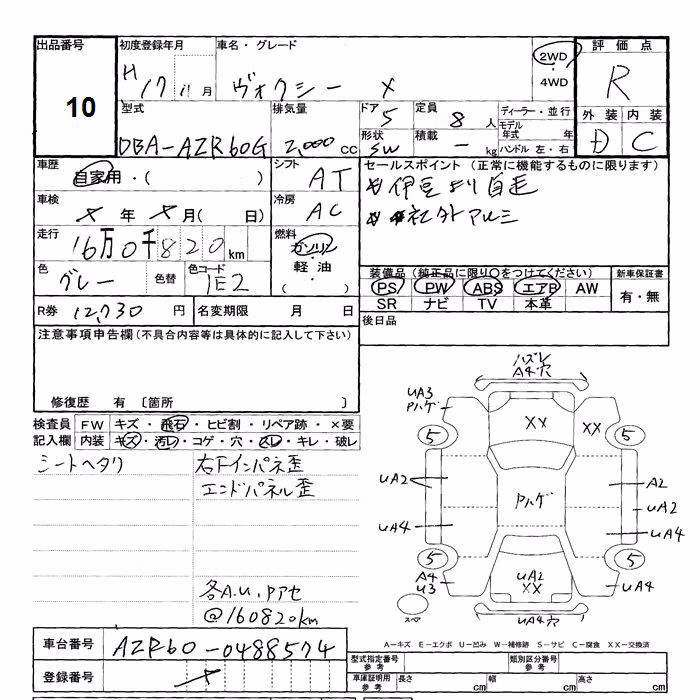 出品番号 初度登録年月 車名・グレード 2WD・4WD 評価点
10 H17 11月 ヴォクシー X R
型式 排気量 ドア 定員 ディーラー・並行 外装 内装
DBA-AZR60G 2,000 cc 5 8人 モデル年式 年 D C
形状 SW 積載 - kg ハンドル 左・右
車歴 自家用・( ) シフト AT セールスポイント (正常に機能するものに限ります)
伊豆ヨリ自走
車検 × 年 × 月( 日) 冷房 AC 社外アルミ
走行 16万0千820km 燃料 ガソリン・軽油・( )
色 グレー 色替 色コード 1E2 装備品 (純正品に限り○をつけてください) 新車保証書
PS PW ABS エアB AW 有・無
SR ナビ TV 本革
R券 12,730 円 名変期限 月 日 後日品
注意事項申告欄(不具合内容等は具体的に記入して下さい)
修復歴 有 〔箇所 〕
検査員 FW キズ・飛石・ヒビ割・リペア跡・×要
記入欄 内装 キズ・汚レ・コゲ・穴・スレ・キレ・破レ
シートヘタリ 右下インパネ歪
エンドパネル歪
各A.U.Pアセ
@160820km
ハズレ
A4穴
UA3
Pハゲ
XX XX
5 5
UA2 Pハゲ A2
UA2
UA4 UA4
5 5
A4 UA2 UA4
U3 XX
スペア UA4穴
A-キズ E-エクボ U-凹み W-補修跡 S-サビ C-腐食 XX-交換済
車台番号 AZR60-0488574 型式指定番号 参考 類別区分番号 参考
登録番号 車庫証明用 参考 長さ cm 幅 cm 高さ cm